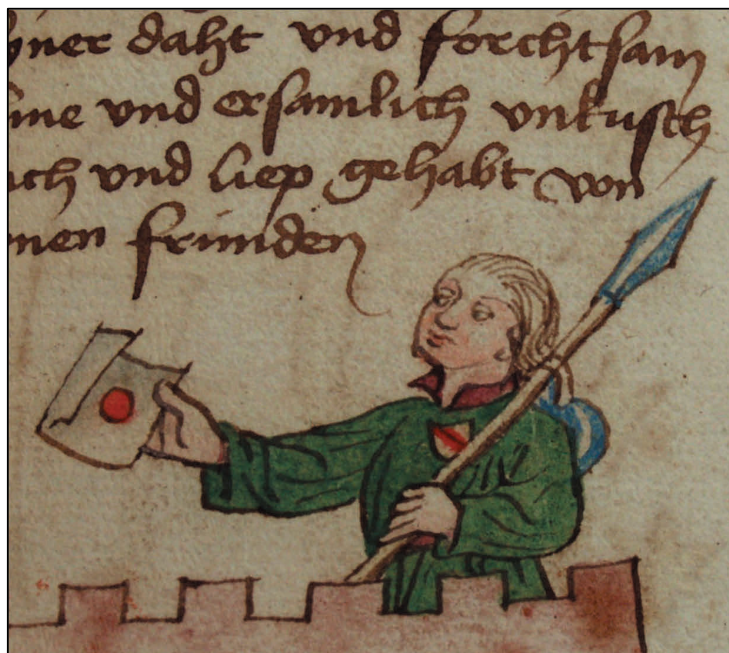 yner daht und forchtsam
me und ersamlich unkusch
ich und liep gehabt von
nen frunden